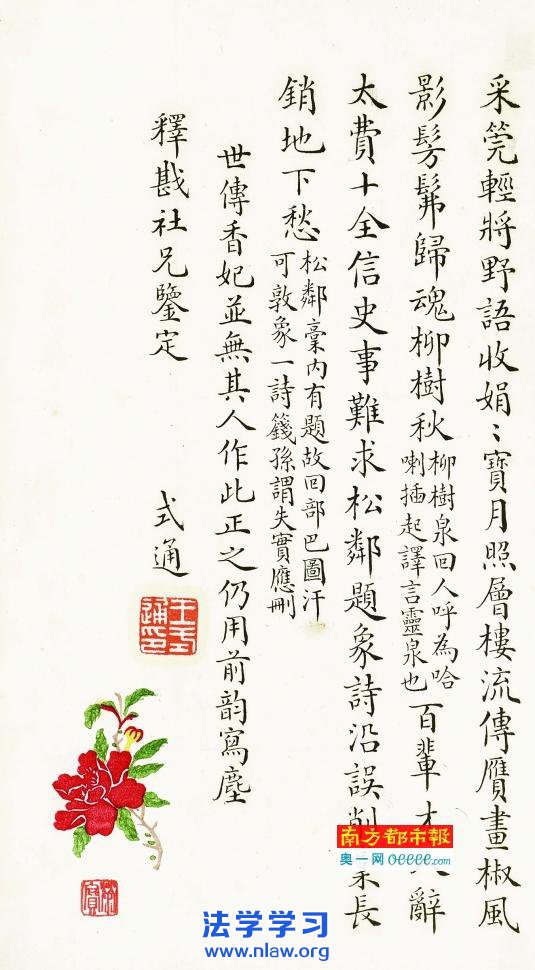 采輕將野語收娟〻寶月照層樓流傳贋畫椒風
影髣髴歸魂柳樹秋
柳樹泉回人呼為哈
喇插起譯言靈泉也
百輩辭
太費十全信史事難求松鄰題象詩沿誤削長
銷地下愁
松鄰稾内有題故回部巴圖汗
可敦象一詩籛孫謂失實應刪
世傳香妃並無其人作此正之仍用前韵寫塵
釋戡社兄鑒定
式通
王式通印
南方都市報
奥一网oeeee.com
法学学习
www.nlaw.org